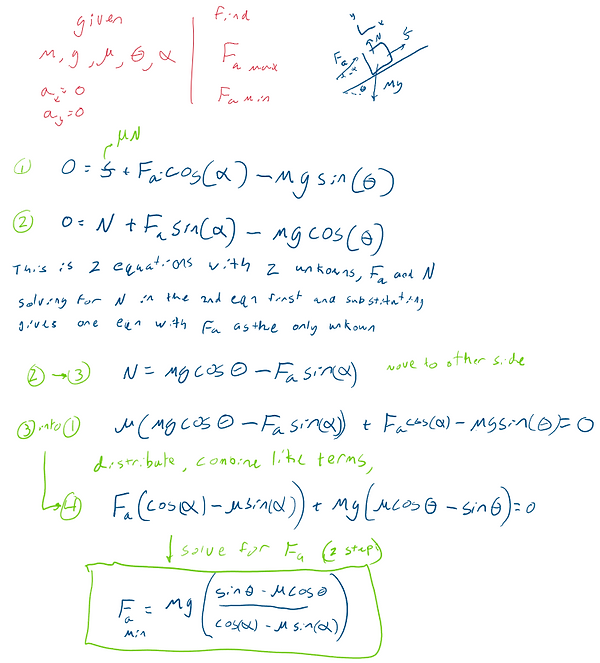 given
m, g, μ, θ, α
aₓ = 0
a_y = 0
find
F_a max
F_a min
y x
N f
F_a
α
θ
mg
μN
① 0 = f + F_a cos(α) − mg sin(θ)
② 0 = N + F_a sin(α) − mg cos(θ)
This is 2 equations with 2 unkowns, F_a and N
solving for N in the 2nd eqn first and substituting
gives one eqn with F_a as the only unkown
② → ③ N = mg cos θ − F_a sin(α) move to other side
③ into ① μ(mg cos θ − F_a sin(α)) + F_a cos(α) − mg sin(θ) = 0
distribute, combine like terms,
④ F_a (cos(α) − μ sin(α)) + mg (μ cos θ − sin θ) = 0
solve for F_a (2 step)
F_a min = mg ((sin θ − μ cos θ) / (cos(α) − μ sin(α)))